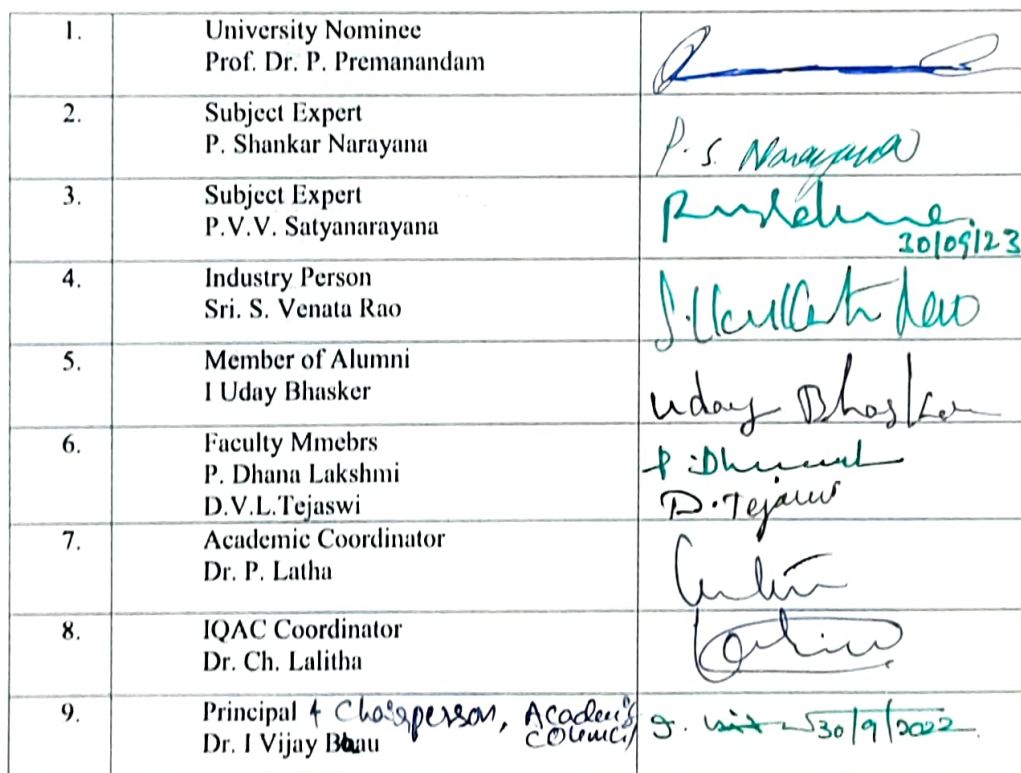 1. University Nominee
Prof. Dr. P. Premanandam
2. Subject Expert
P. Shankar Narayana P. S. Narayana
3. Subject Expert
P.V.V. Satyanarayana
30/09/23
4. Industry Person
Sri. S. Venata Rao
5. Member of Alumni
I Uday Bhasker Uday Bhasker
6. Faculty Mmebrs
P. Dhana Lakshmi
D.V.L.Tejaswi D. Tejaswi
7. Academic Coordinator
Dr. P. Latha
8. IQAC Coordinator
Dr. Ch. Lalitha
9. Principal & Chairperson, Academic Council
Dr. I Vijay Babu 30/9/2022